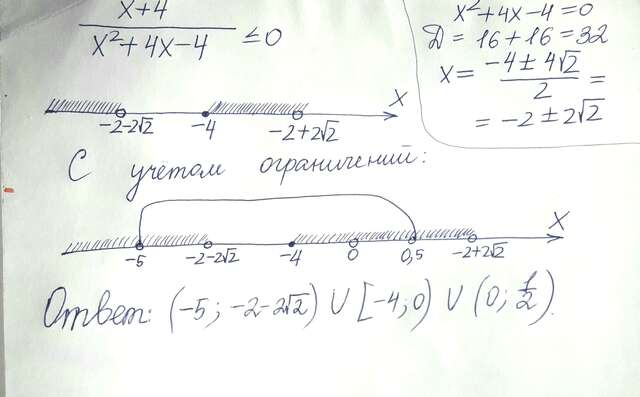 x+4
x²+4x−4 ≤ 0
x²+4x−4=0
D = 16+16=32
x = −4±4√2 =
2
= −2±2√2
−2−2√2 −4 −2+2√2 x
С учётом ограничений:
−5 −2−2√2 −4 0 0,5 −2+2√2 x
Ответ: (−5; −2−2√2) ∪ [−4; 0) ∪ (0; 1/2).